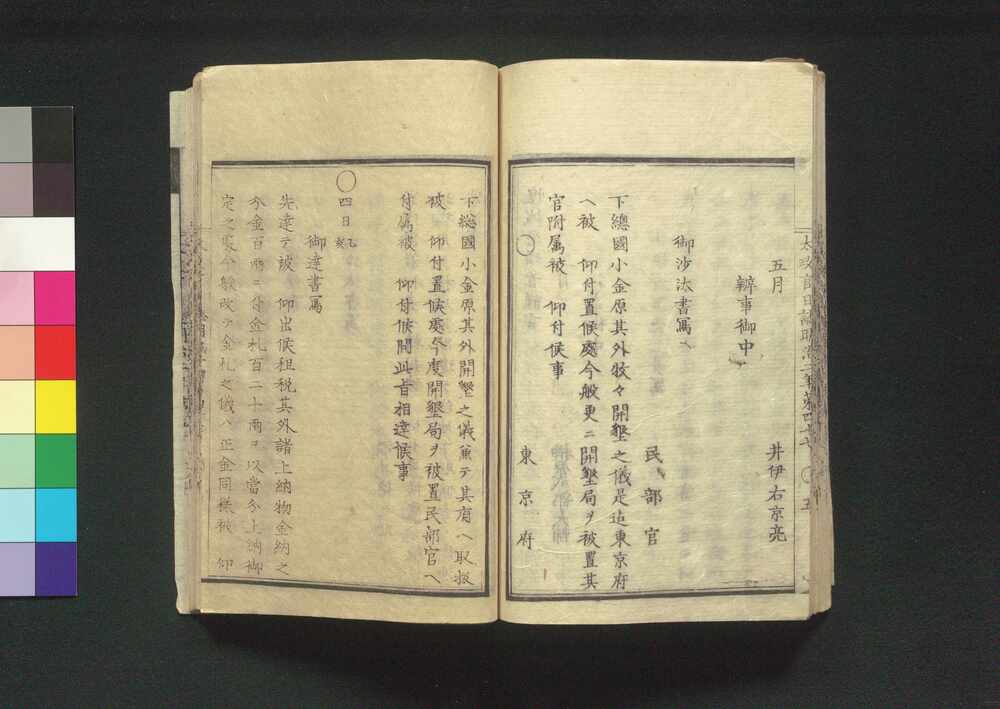 五月
井伊右京亮
辨事御中
御沙汰書寫
民部官
下總國小金原其外牧々開墾之儀是迄東京府
ヘ被　仰付置候處今般更ニ開墾局ヲ被置其
官附属被　仰付候事
○
東京府
下總國小金原其外開墾之儀兼テ其府ヘ取扱
被　仰付置候處今度開墾局ヲ被置民部官ヘ
付属被　仰付候間此旨相達候事
○
四日
御達書寫
先達テ被　仰出候租税其外諸上納物金納之
分金百兩ニ付金札百二十兩ヲ以當分上納御
定之處今般改テ金札之儀ハ正金同様被　仰
太政官日誌明治二年第四十七　○　五